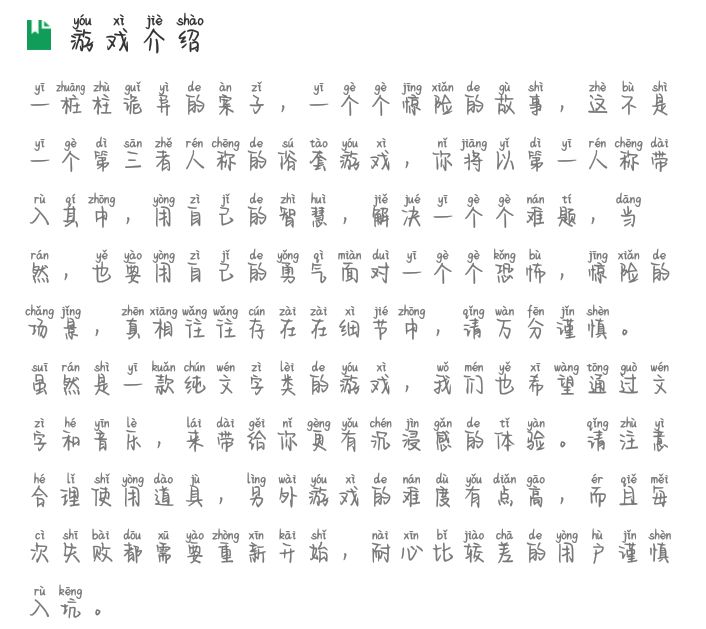 yóu xì jiè shào
游戏介绍
yī zhuāng zhù guǐ yì de àn zǐ yī gè gè jīng xiǎn de gù shì zhè bù shì
一桩柱诡异的案子，一个个惊险的故事，这不是
yī gè dì sān zhě rén chēng de sú tào yóu xì nǐ jiāng yǐ dì yī rén chēng dài
一个第三者人称的俗套游戏，你将以第一人称带
rù qí zhōng yòng zì jǐ de zhì huì jiě jué yī gè gè nán tí dāng
入其中，用自己的智慧，解决一个个难题，当
rán yě yào yòng zì jǐ de yǒng qì miàn duì yī gè gè kǒng bù jīng xiǎn de
然，也要用自己的勇气面对一个个恐怖，惊险的
chǎng jǐng zhēn xiāng wǎng wǎng cún zài zài xì jié zhōng qǐng wàn fēn jǐn shèn
场景，真相往往存在在细节中，请万分谨慎。
suī rán shì yī kuǎn chún wén zì lèi de yóu xì wǒ mén yě xī wàng tōng guò wén
虽然是一款纯文字类的游戏，我们也希望通过文
zì hé yīn lè lái dài gěi nǐ gèng yǒu chén jìn gǎn de tǐ yàn qǐng zhù yì
字和音乐，来带给你更有沉浸感的体验。请注意
hé lǐ shǐ yòng dào jù lìng wài yóu xì de nán dù yǒu diǎn gāo ér qiě měi
合理使用道具，另外游戏的难度有点高，而且每
cì shī bài dōu xū yào zhòng xīn kāi shǐ nài xīn bǐ jiào chā de yòng hù jǐn shèn
次失败都需要重新开始，耐心比较差的用户谨慎
rù kēng
入坑。